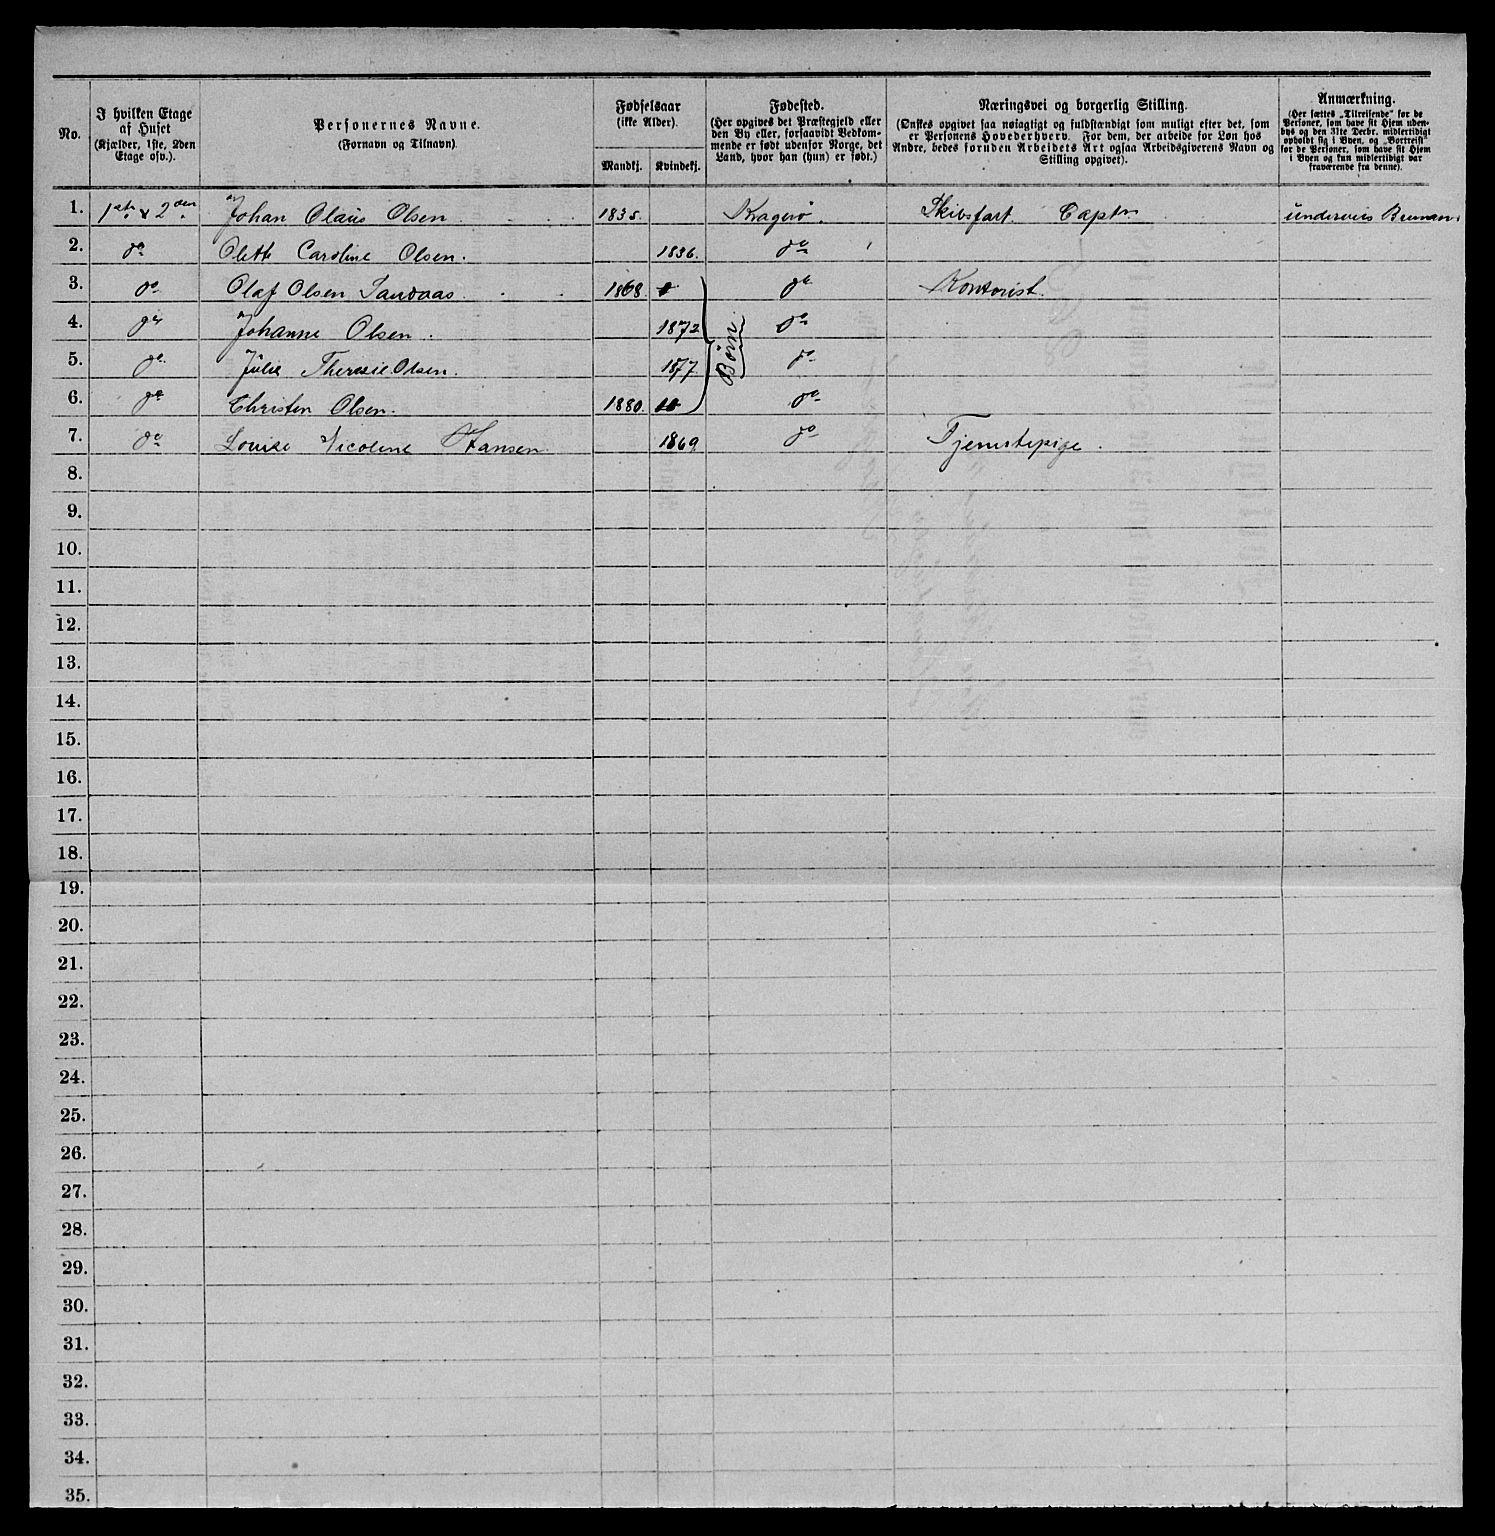 No.
I hvilken Etage
af Huset
(Kjælder, 1ste, 2den
Etage osv.).
Personernes Navne.
(Fornavn og Tilnavn)
Fødselsaar
(ikke Alder).
Mandkj. Kvindekj.
Fødested.
(Her opgives det Præstegjeld eller
den By eller, forsaavidt Vedkom-
mende er født udenfor Norge, det
Land, hvor han (hun) er født.)
Næringsvei og borgerlig Stilling.
(Ønskes opgivet saa nøiagtigt og fuldstændigt som muligt efter det, som
er Personens Hovederhverv. For dem, der arbeide for Løn hos
Andre, bedes foruden Arbeidets Art ogsaa Arbeidsgiverens Navn og
Stilling opgivet).
Anmærkning.
(Her sættes „Tilreisende" for de
Personer, som have sit Hjem uden-
bys og den 31te Decbr. midlertidigt
opholdt sig i Byen, og „Bortreist"
for de Personer, som have sit Hjem
i Byen og kun midlertidigt var
fraværende fra denne).
1. 1ste & 2den Johan Claus Olsen 1835. Kragerø. Skibsfart. Captn underveis
2. do Olette Caroline Olsen. 1836. do
3. do Olaf Olsen Sandaas 1868. do Kontorist.
4. do Johanne Olsen. 1872 Børn do
5. do Julie Theresie Olsen. 1877 do
6. do Christen Olsen. 1880. do
7. do Louise Nicoline Hansen. 1869 do Tjenestepige.
8.
9.
10.
11.
12.
13.
14.
15.
16.
17.
18.
19.
20.
21.
22.
23.
24.
25.
26.
27.
28.
29.
30.
31.
32.
33.
34.
35.